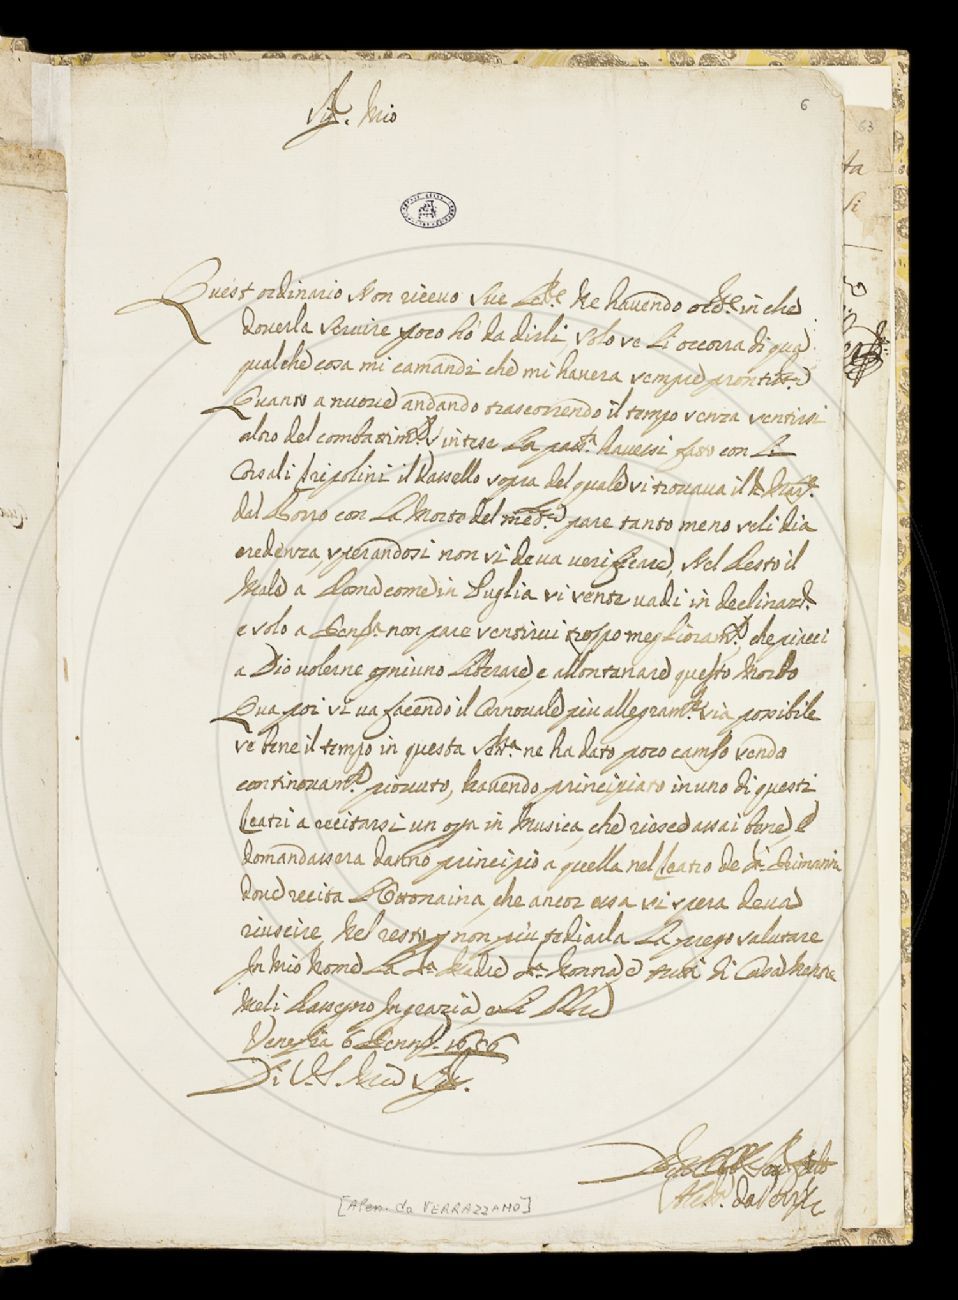 Sig.r Mio
6
63
ta
si
Quest ordinario Non riceuo sue L.re Ne hauendo occ.e in che
douerla seruire poco hò da dirli, solo se li occorra di qua
qualche cosa mi comandi che mi hauera sempre
Quanto a nuoue andando trascorrendo il tempo senza sentirsi
altro del combattim.to intese hauessi fatto con Li
Corsali tripolini il Vassello sopra del quale si trouaua il
dal Borro con La Morte del med.o pare tanto meno seli dia
credenza, sperandosi non si deua uerificare, Nel Resto il
Male a Roma come in Puglia si sente uadi in declinaz.e
e solo a non pare sentirui troppo megliioram.to, che piacci
a Dio uolerne ogniuno Liberare, e allontanare questo Morbo
Qua poi si ua facendo il Carnouale piu allegram.te sia possibile
se bene il tempo in questa ne ha dato poco campo sendo
continouam.te piouuto, hauendo principiato in uno di questi
Teatri a recitarsi un opa in Musica, che riesce assai bene, e
domandassera danno principio a quella nel Teatro de Grimanni
doue recita che ancor essa si spera deua
riuscire, Nel resto p non piu tediarla La prego salutare
In Mio Nome La Sig.a Madre Nonna, e tutti di Casa Mentre
Meli Rassegno In grazia, e Li
Venezia 6 1656
Di V.S. Mio Sig.r
Aless.o da Verr.o
[Alen. da VERRAZZANO]